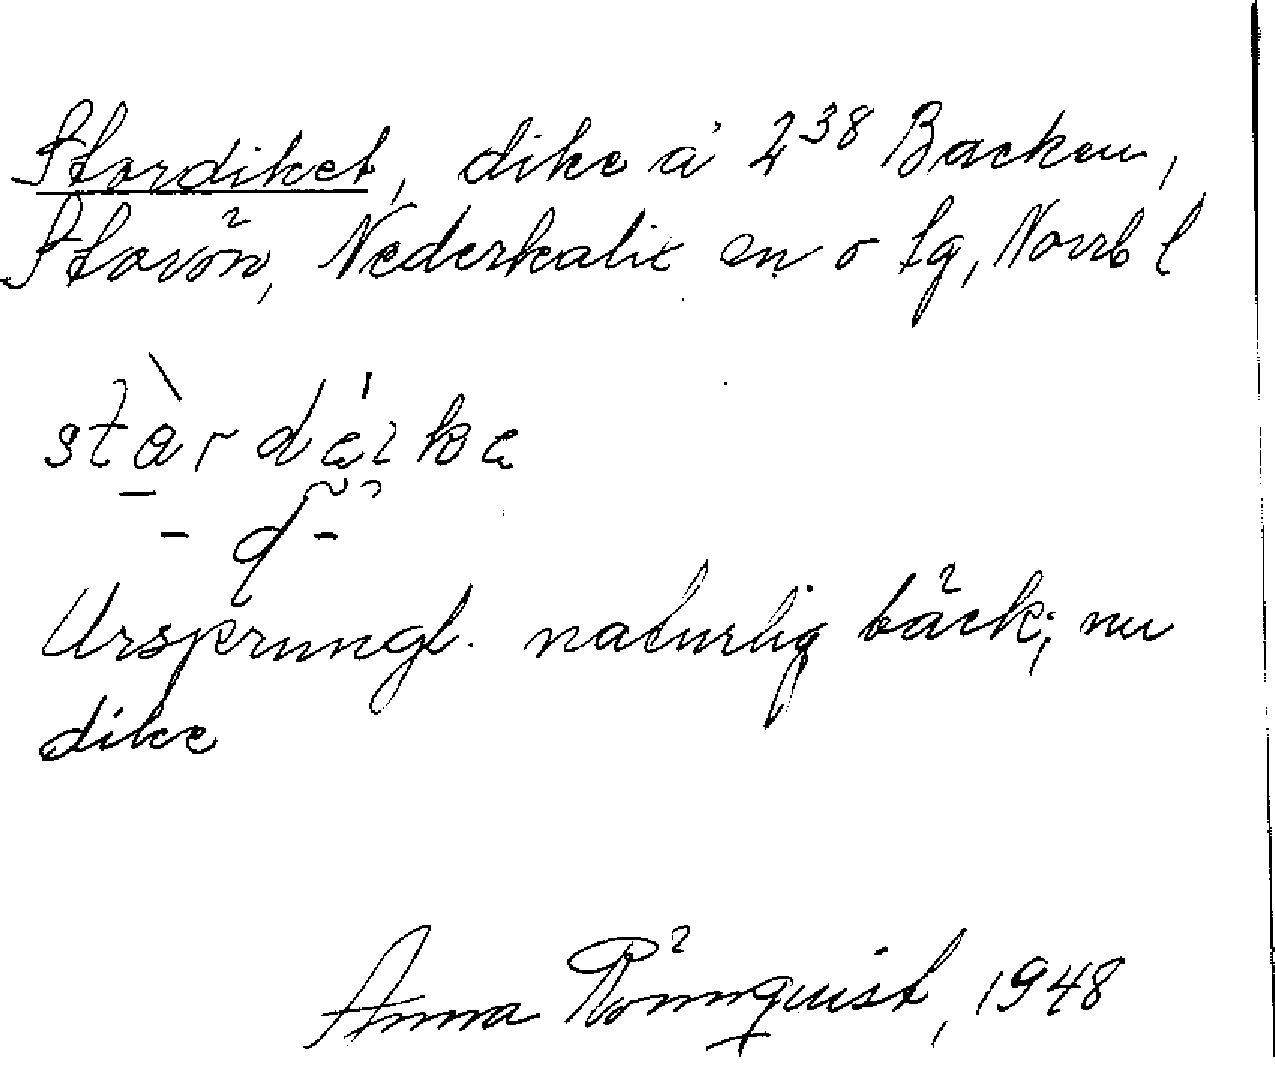 Stordiket, dike å 2³⁸ Backen,
Storön, Nederkalix sn o tg, Norrb l
Ursprungl. naturlig bäck; nu
dike
Anna Rönnquist, 1948